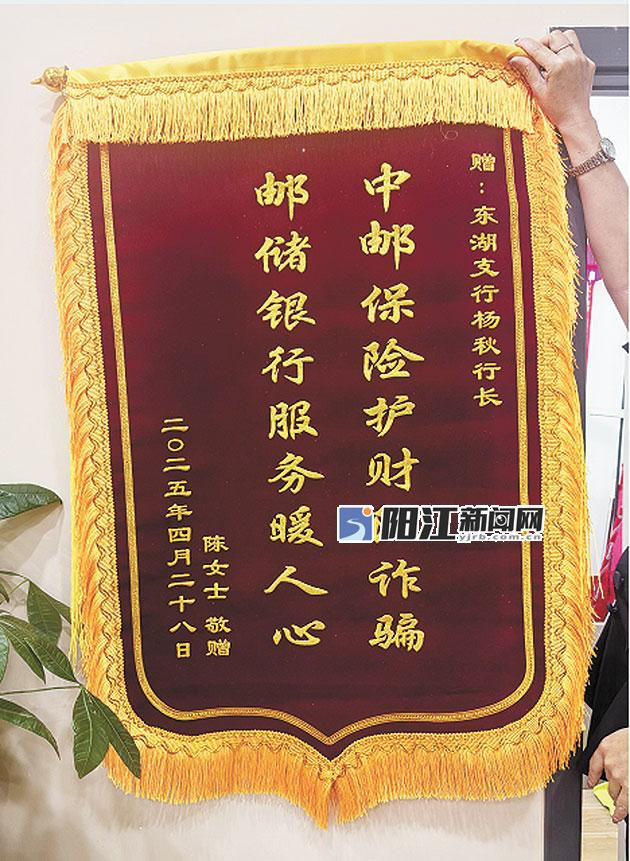 赠：东湖支行杨秋行长
中邮保险护财诈骗
邮储银行服务暖人心
陈女士 敬赠
二〇二五年四月二十八日
阳江新闻网
yjrb.com.cn